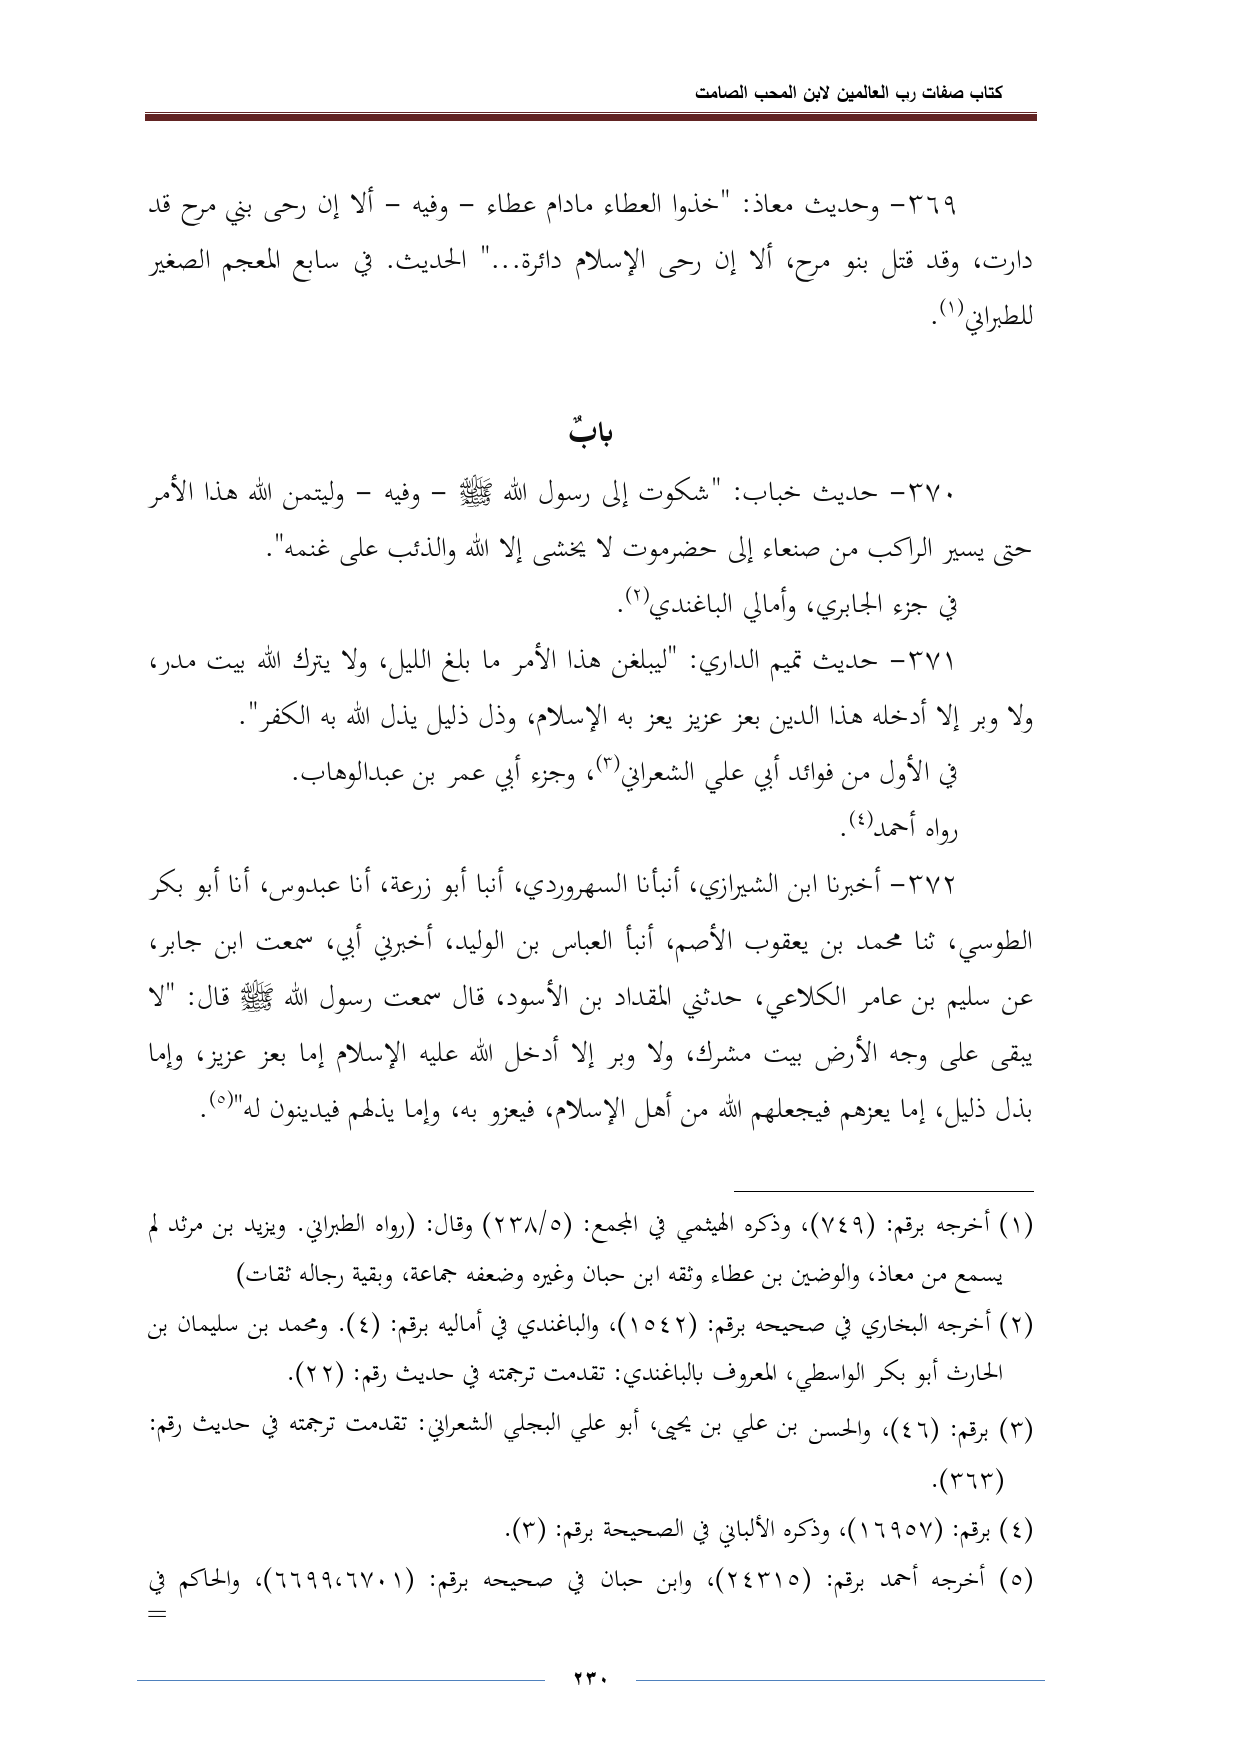 كتاب صفات رب العالمين لابن المحب الصامت
٣٦٩- وحديث معاذ: "خذوا العطاء مادام عطاء – وفيه – ألا إن رحى بني مرح قد
دارت، وقد قتل بنو مرح، ألا إن رحى الإسلام دائرة..." الحديث. في سابع المعجم الصغير
للطبراني(١).
بابٌ
٣٧٠- حديث خباب: "شكوت إلى رسول الله ﷺ – وفيه – وليتمن الله هذا الأمر
حتى يسير الراكب من صنعاء إلى حضرموت لا يخشى إلا الله والذئب على غنمه".
في جزء الجابري، وأمالي الباغندي(٢).
٣٧١- حديث تميم الداري: "ليبلغن هذا الأمر ما بلغ الليل، ولا يترك الله بيت مدر،
ولا وبر إلا أدخله هذا الدين بعز عزيز يعز به الإسلام، وذل ذليل يذل الله به الكفر".
في الأول من فوائد أبي علي الشعراني(٣)، وجزء أبي عمر بن عبدالوهاب.
رواه أحمد(٤).
٣٧٢- أخبرنا ابن الشيرازي، أنبأنا السهروردي، أنبا أبو زرعة، أنا عبدوس، أنا أبو بكر
الطوسي، ثنا محمد بن يعقوب الأصم، أنبأ العباس بن الوليد، أخبرني أبي، سمعت ابن جابر،
عن سليم بن عامر الكلاعي، حدثني المقداد بن الأسود، قال سمعت رسول الله ﷺ قال: "لا
يبقى على وجه الأرض بيت مشرك، ولا وبر إلا أدخل الله عليه الإسلام إما بعز عزيز، وإما
بذل ذليل، إما يعزهم فيجعلهم الله من أهل الإسلام، فيعزو به، وإما يذلهم فيدينون له"(٥).
(١) أخرجه برقم: (٧٤٩)، وذكره الهيثمي في المجمع: (٢٣٨/٥) وقال: (رواه الطبراني. ويزيد بن مرثد لم
يسمع من معاذ، والوضين بن عطاء وثقه ابن حبان وغيره وضعفه جماعة، وبقية رجاله ثقات)
(٢) أخرجه البخاري في صحيحه برقم: (١٥٤٢)، والباغندي في أماليه برقم: (٤). ومحمد بن سليمان بن
الحارث أبو بكر الواسطي، المعروف بالباغندي: تقدمت ترجمته في حديث رقم: (٢٢).
(٣) برقم: (٤٦)، والحسن بن علي بن يحيى، أبو علي البجلي الشعراني: تقدمت ترجمته في حديث رقم:
(٣٦٣).
(٤) برقم: (١٦٩٥٧)، وذكره الألباني في الصحيحة برقم: (٣).
(٥) أخرجه أحمد برقم: (٢٤٣١٥)، وابن حبان في صحيحه برقم: (٦٦٩٩،٦٧٠١)، والحاكم في
=
٢٣٠